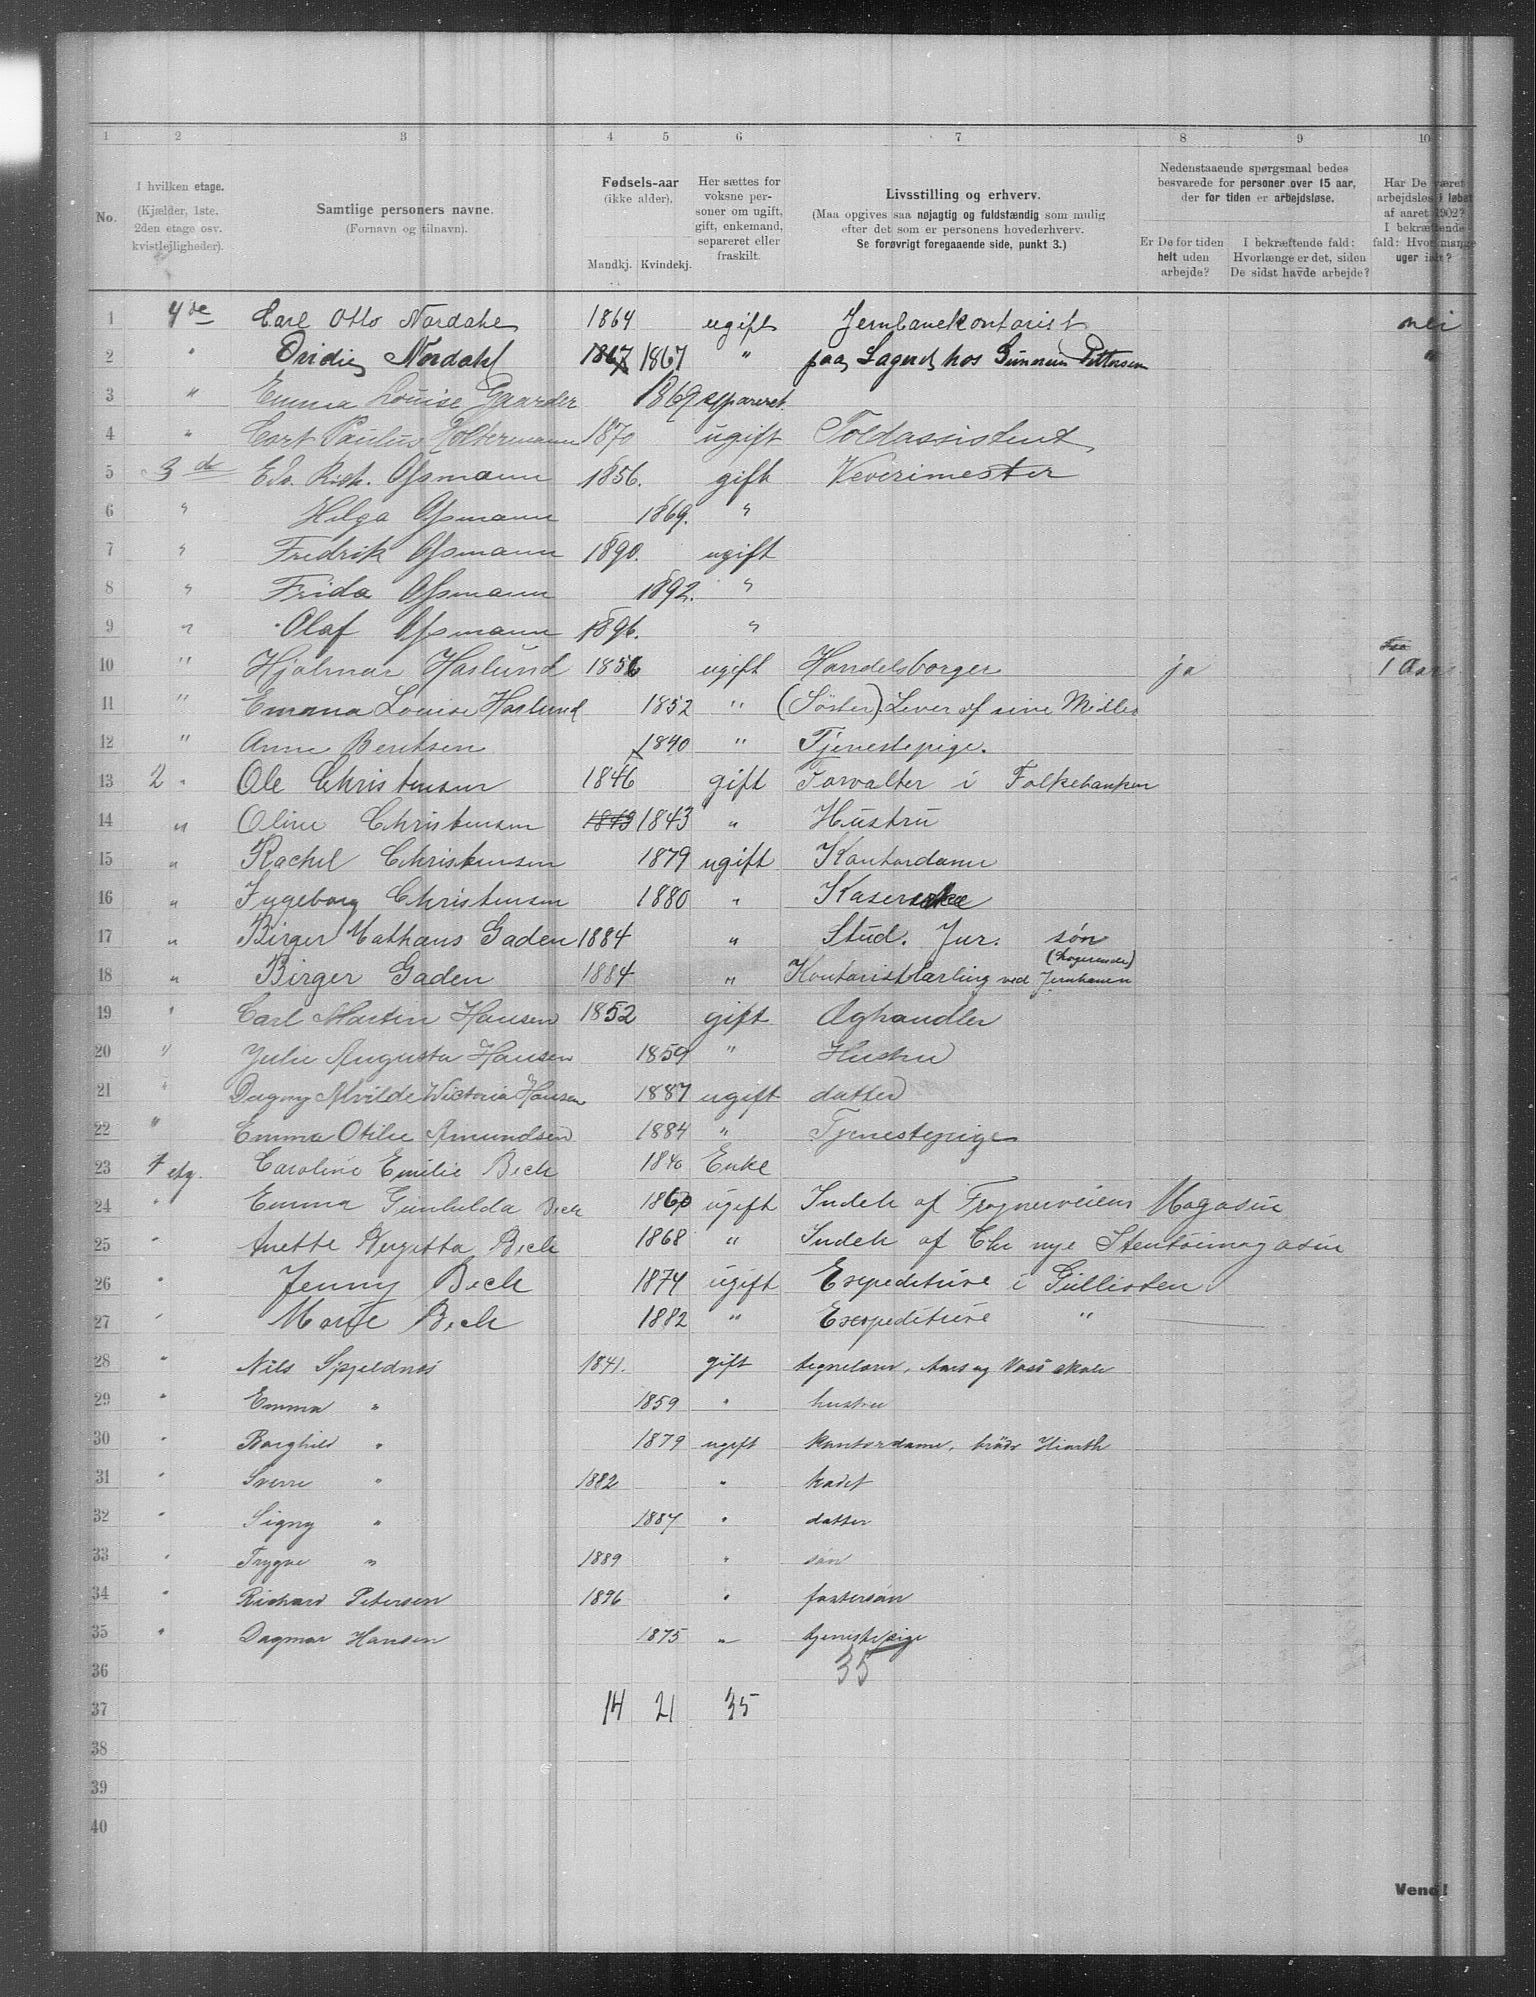 1 2 3 4 5 6 7 8 9 10
No.
I hvilken etage.
(Kjælder, 1ste.
2den etage osv.
kvistlejligheder).
Samtlige personers navne.
(Fornavn og tilnavn).
Fødsels-aar
(ikke alder).
Mandkj. Kvindekj.
Her sættes for
voksne per-
soner om ugift,
gift, enkemand,
separeret eller
fraskilt.
Livsstilling og erhverv.
(Maa opgives saa nøjagtig og fuldstændig som mulig
efter det som er personens hovederhverv.
Se forøvrigt foregaaende side, punkt 3.)
Nedenstaaende spørgsmaal bedes
besvarede for personer over 15 aar,
der for tiden er arbejdsløse.
Er De for tiden
helt uden
arbejde?
I bekræftende fald:
Hvorlænge er det, siden
De sidst havde arbejde?
Har De været
arbejdsløs i løbet
af aaret 1902?
I bekræftende
fald: Hvor mange
uger ialt?
1 4de Carl Otto Nordahl 1864 ugift Jernbanekontorist nei
2 " Nordahl 1867 1867 " paa Lager hos Gunerius Pettersen "
3 " Emma Louise Gaarder 1869 separeret
4 " Cort Paulus Holtermann 1870 ugift Toldassistent
5 3de Edv. Rich. Ossmann 1856. gift Væverimester
6 " Helga Ossmann 1869. "
7 " Fredrik Ossmann 1890. ugift
8 " Frida Ossmann 1892. "
9 " Olaf Ossmann 1896. "
10 " Hjalmar Haslund 1856 ugift Handelsborger ja 1 Aar
11 " Emma Louise Haslund 1852 " (Söster). Lever af sine Midler
12 " Anne Berntsen 1840 " Tjenestepige.
13 2 " Ole Christensen 1846 gift Forvalter i Folkebanken
14 " Oline Christensen 1843 1843 " Hustru
15 " Rachel Christensen 1879 ugift Kontordame
16 " Ingeborg Christensen 1880 " Kasererske
17 " Birger Mathæus Gaden 1884 " Stud. Jur. søn
18 " Birger Gaden 1884 " Kontoristlærling ved Jernbanen (Logerende)
19 " Carl Martin Hansen 1852 gift Æghandler
20 " Julie Augusta Hansen 1859 " Hustru
21 " Dagny Alvilde Wictoria Hansen 1887 ugift datter
22 " Emma Otilie Amundsen 1884 " Tjenestepige
23 1 etg. Caroline Emilie Bech 1840 Enke
24 " Emma Gunhilda Bech 1860 ugift Indeh af Frognerveiens Magasin
25 " Anette Bergitta Bech 1868 " Indeh af Chr nye Stentöimagasin
26 " Jenny Bech 1874 ugift Exepeditrise i
27 " Marie Bech 1882 " Exepeditrise "
28 " Nils Spjeldnæs 1841. gift tegnelærer, Aars og Voss skole
29 " Emma " 1859 " hustru
30 " Borghild " 1879 ugift kontordame, brödr Hiorth
31 " Sverre " 1882 " kadet
32 " Signy " 1887 " datter
33 " Trygve " 1889 " sön
34 " Richard Petersen 1896 " fostersön
35 " Dagmar Hansen 1875 " tjenestepige
36 35
37 14 21 35
38
39
40
Vend!